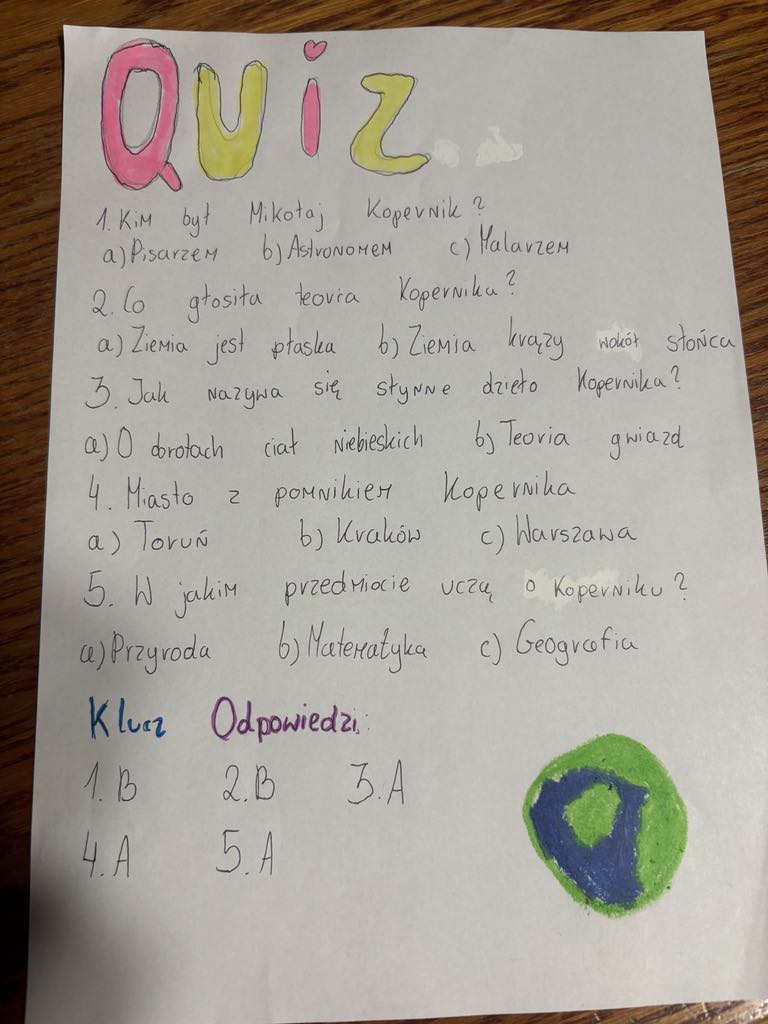 QUiZ
1. Kim był Mikołaj Kopernik?
a) Pisarzem b) Astronomem c) Malarzem
2. Co głosiła teoria Kopernika?
a) Ziemia jest płaska b) Ziemia krąży wokół słońca
3. Jak nazywa się słynne dzieło Kopernika?
a) O obrotach ciał niebieskich b) Teoria gwiazd
4. Miasto z pomnikiem Kopernika
a) Toruń b) Kraków c) Warszawa
5. W jakim przedmiocie uczą o Koperniku?
a) Przyroda b) Matematyka c) Geografia
Klucz Odpowiedzi:
1. B 2. B 3. A
4. A 5. A